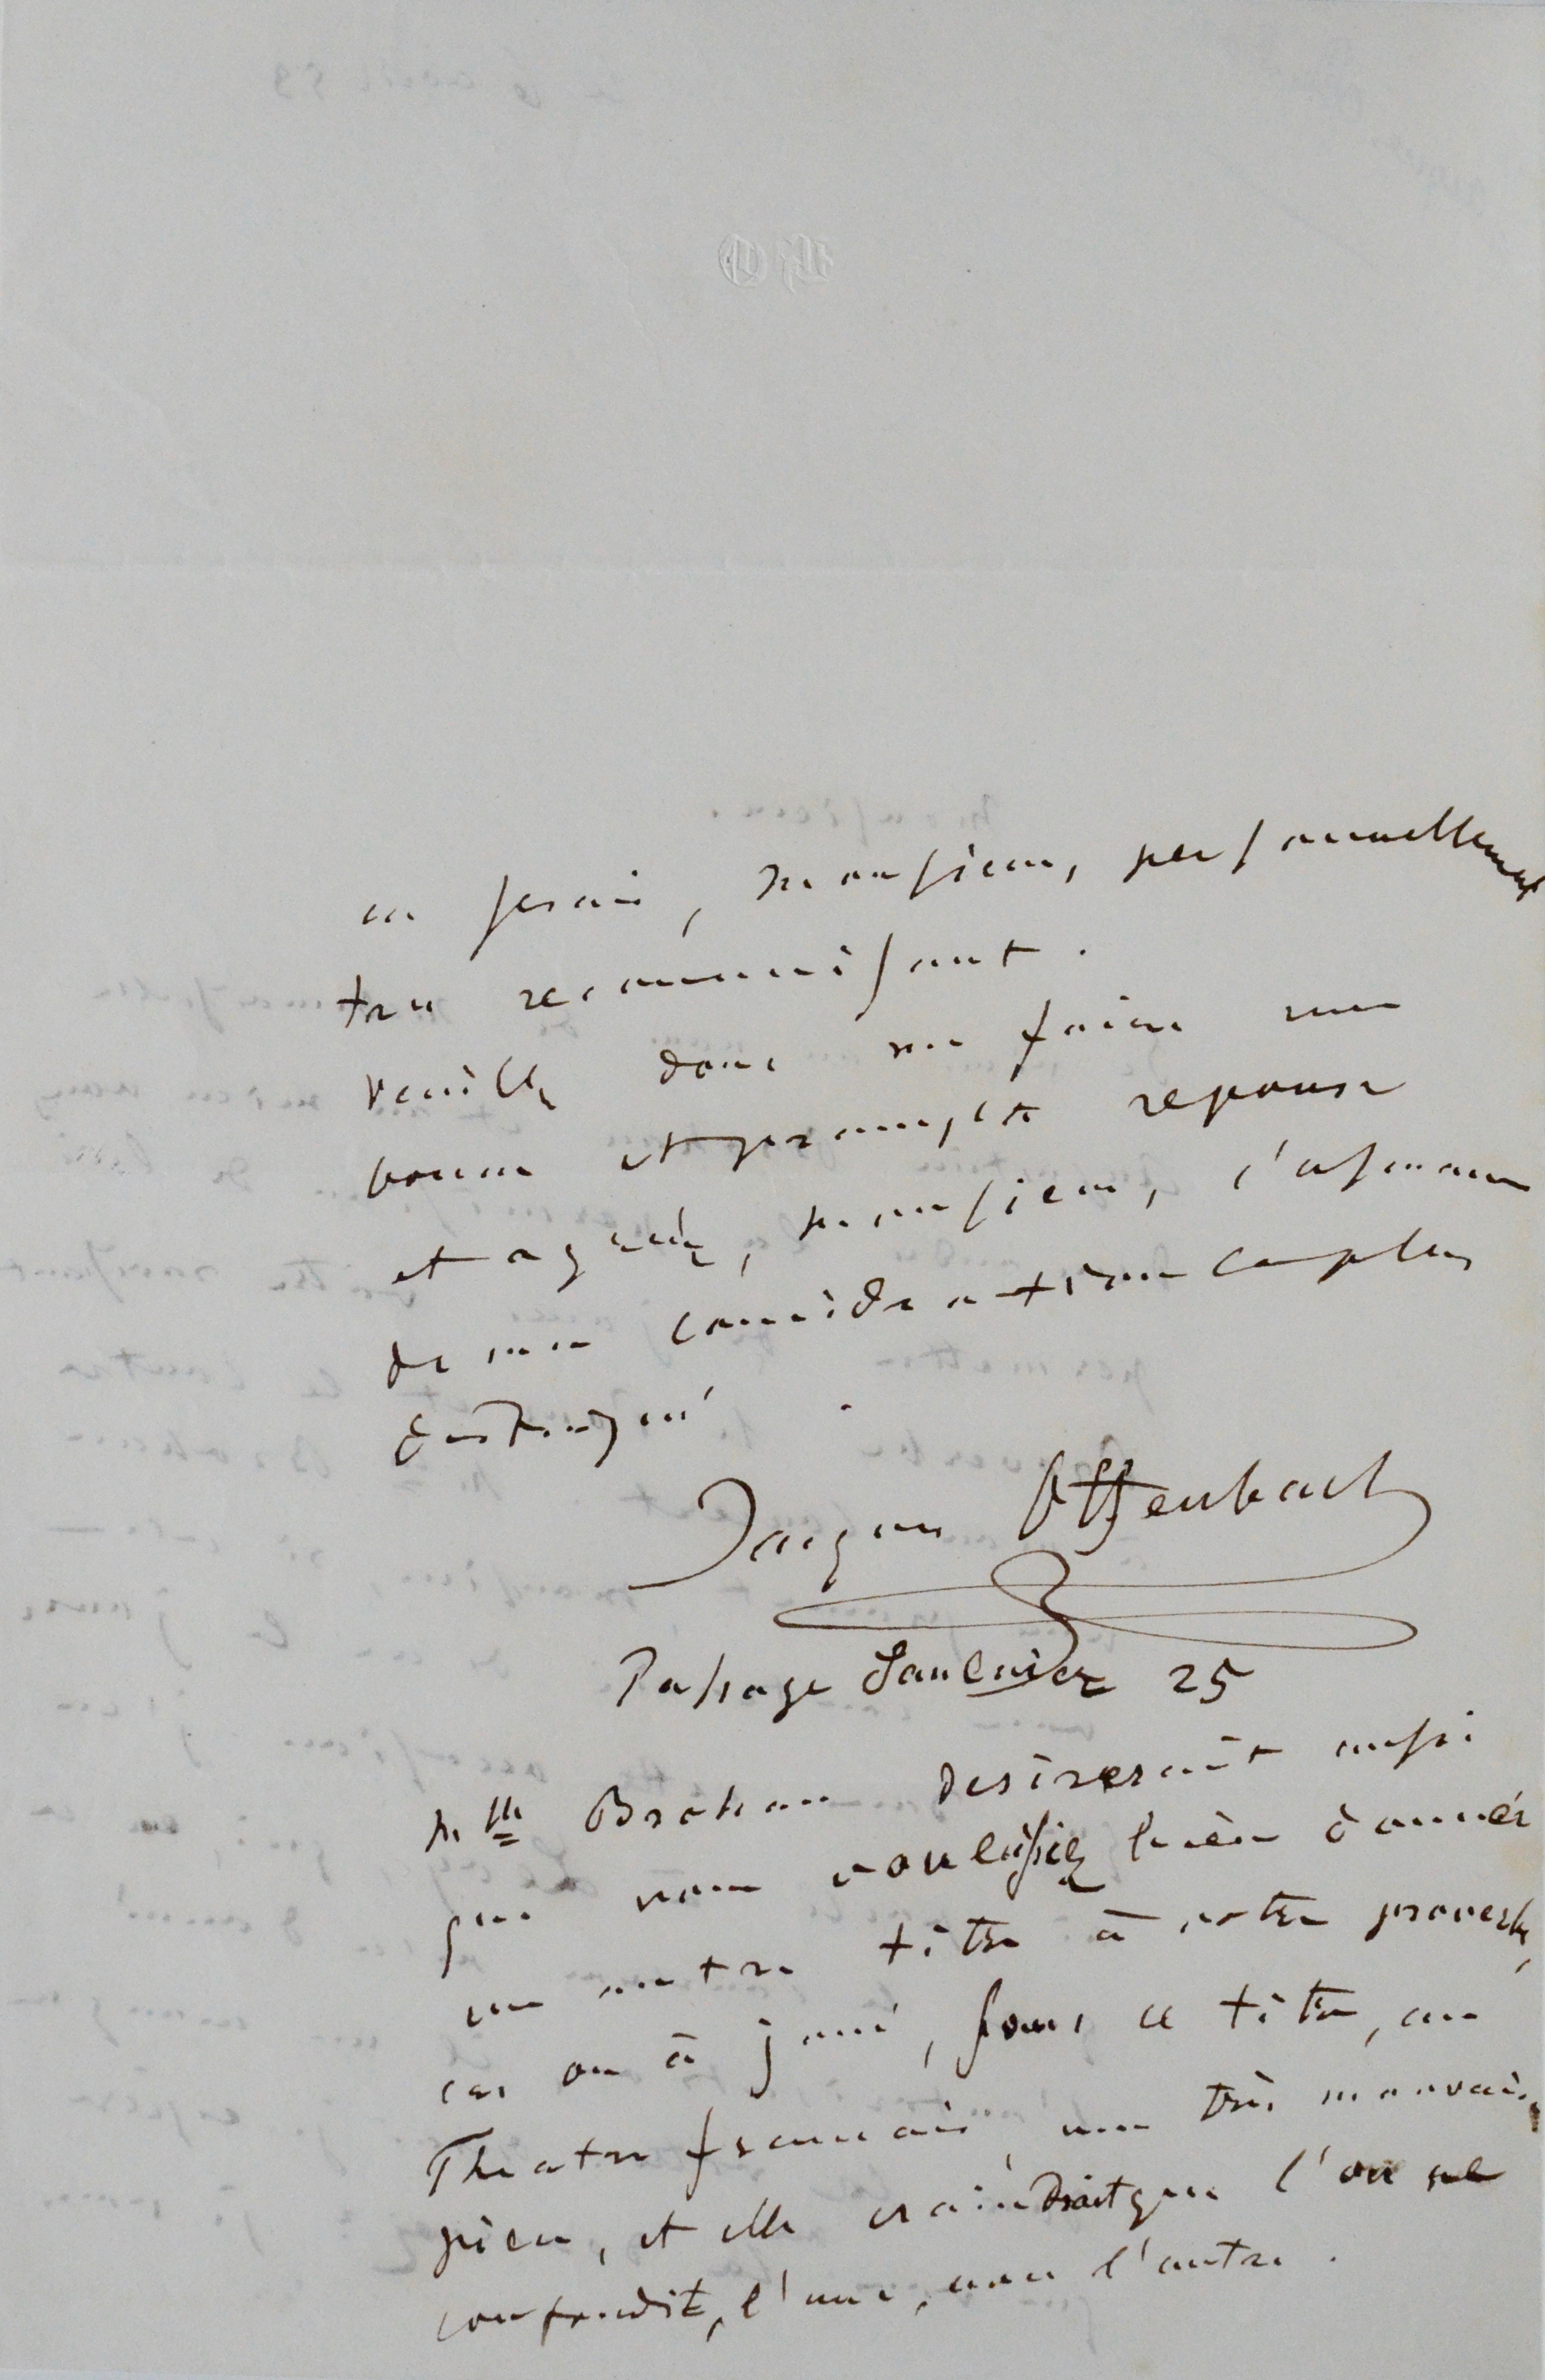 en serai, Monsieur, personnellement
très reconnaissant.
Veuillez donc me faire une
bonne et prompte reponse
et agréér, Monsieur, l'assurance
de ma considération la plus
distinguée.
Jacques Offenbach
Passage Saulnier 25
Mlle Brohan desirerait aussi
que vous voulussiez bien donner
un autre titre à votre proverbe,
car on à joué, sous ce titre, au
Theatre francais une très mauvaise
pièce, et elle craindrait que l'on ne
confondit, l'une, avec l'autre.